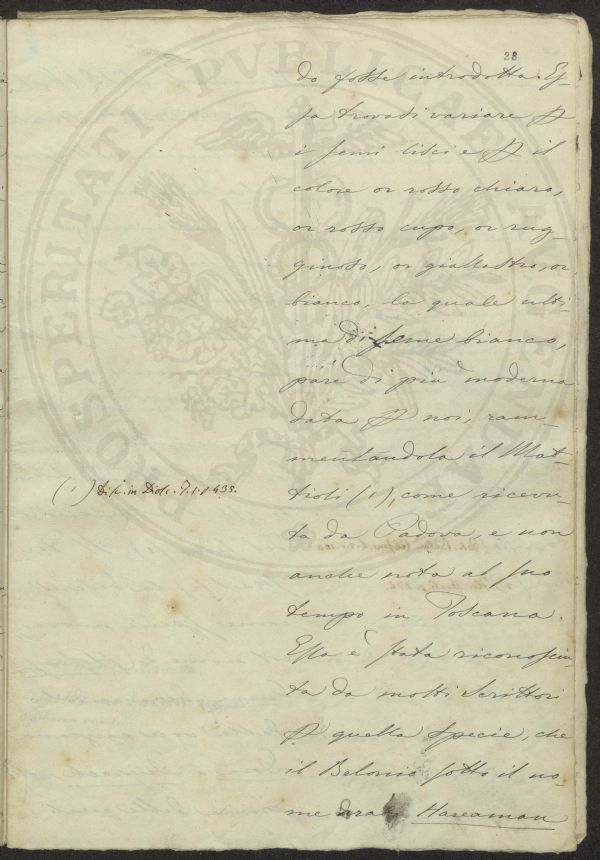 28
do fosse introdotta. Es-
sa trovasi variare p
i semi lisci e p il
colore or rosso chiaro,
or rosso cupo, or rug-
ginoso, or giallastro, or
bianco, la quale ulti
ma di seme bianco,
pare di più moderna
data p noi, ram-
mentandola il Mat-
tioli (1), come ricevu-
ta da Padova, e non
anche nota al suo
tempo in Toscana.
Essa è stata riconosciu-
ta da molti Scrittori
p quella specie, che
il Belonio sotto il no-
me Hareaman
(1) Disc. in Diosc. T. 1. p. 435.
PROSPERITATI PVBLICAE